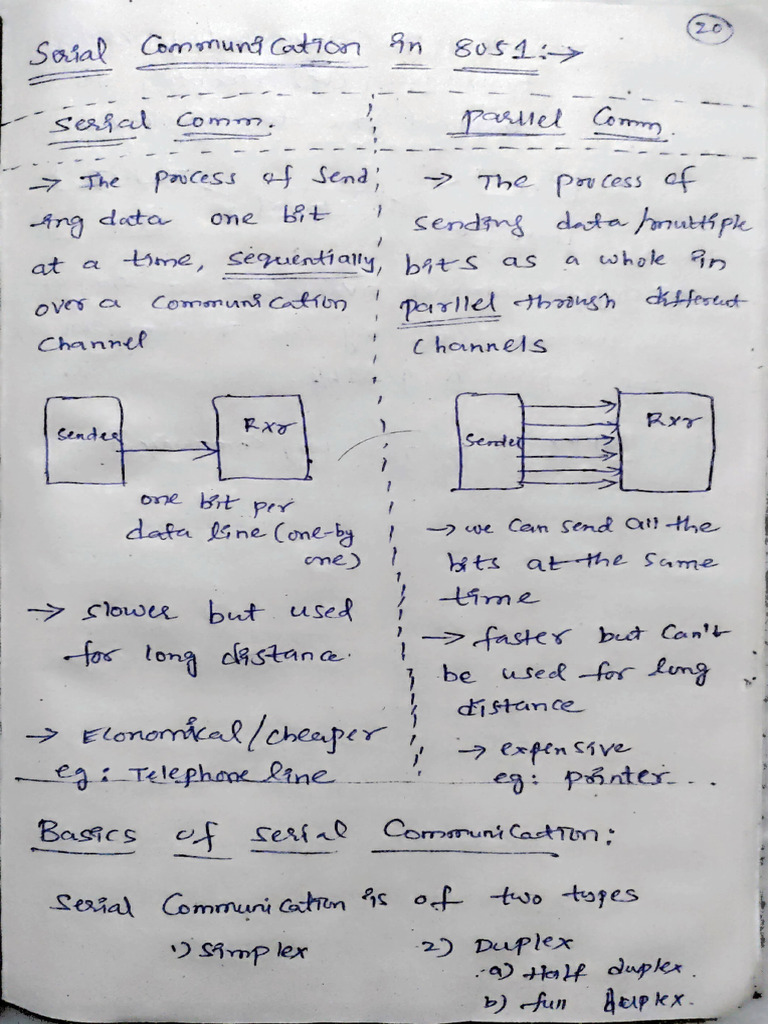 20
Serial Communication in 8051:→
Serial Comm.
→ The process of Send
ing data one bit
at a time, sequentially,
over a communication
Channel
Sender
Rxr
one bit per
data line (one-by
one)
→ slower but used
for long distance.
→ Economical/cheaper
eg: Telephone line
Parllel Comm.
→ The process of
sending data/multiple
bits as a whole in
parllel through different
Channels
Sender
Rxr
→ we can send all the
bits at the same
time
→ faster but can't
be used for long
distance
→ expensive
eg: printer...
Basics of serial Communication:
Serial Communication is of two types
1) Simplex
2) Duplex
a) Half duplex.
b) full duplex.